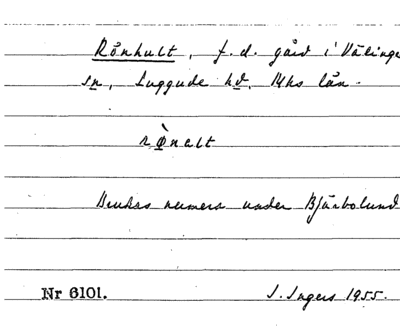 Rönhult, f.d. gård i Välinge
sn, Luggude hd, Mhs län.
rø̀nelt
Brukas numera under Bjärbolund
Nr 6101.
I. Ingers 1955.